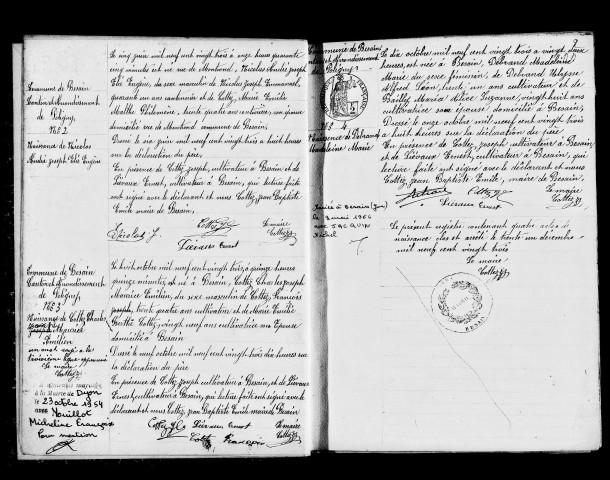 Commune de Besain
Canton et Arrondissement
de Poligny
No 2
Naissance de Nicolas
André Joseph Elé Eugène
Le cinq juin mil neuf cent vingt trois à onze heures quarante
cinq minutes est né rue de Montaval, Nicolas André Joseph
Elé Eugène, du sexe masculin de Nicolas Joseph Emmanuel,
quarante un ans cantonnier et de Cottez Marie Emilie
Marthe Philomène, trente quatre ans cantinière, son épouse
domiciliés rue commune de Besain.
Dressé le six juin mil neuf cent vingt trois à huit heures
sur la déclaration du père.
En présence de Cottez Joseph, cultivateur à Besain et de
Liévaux Ernest, cultivateur à Besain, qui lecture faite
ont signé avec le déclarant et nous Cottez Jean Baptiste
Emile maire de Besain.
Nicolas J. Cottez Le maire
Liévaux Ernest Cottez
Commune de Besain
Canton et Arrondissement
de Poligny
No 3
Naissance de Cottez Charles
Joseph Maurice
Emilien
un mot rayé à la
troisième ligne approuvé
Le maire
Cottez
à la Mairie de Dijon
le 23 octobre 1954
avec Nouillot
Micheline Françoise
Pour mention
Le huit octobre mil neuf cent vingt trois, à quinze heures
quinze minutes, est né à Besain, Cottez Charles Joseph
Maurice Emilien, du sexe masculin de Cottez François
Joseph, trente quatre ans cultivateur et de Marie Emilie
Berthe Cottez, vingt neuf ans cultivatrice son Epouse
domiciliés à Besain
Dressé le neuf octobre mil neuf cent vingt trois dix heures sur
la déclaration du père
En présence de Cottez Joseph cultivateur à Besain, et de Liévaux
Ernest, cultivateur à Besain, qui lecture faite ont signé avec le
déclarant et nous Cottez Jean Baptiste Emile maire de Besain
Cottez Liévaux Ernest Le maire
Cottez François Cottez
Commune de Besain
Canton et Arrondissement
de Poligny
No 4
Naissance de Debrand
Madeleine Marie
Mariée à Besain (Jura)
le 3 mai 1956
avec JACQUIN
Michel
Le dix octobre mil neuf cent vingt trois à vingt deux
heures, est née à Besain, Debrand Madeleine
Marie du sexe féminin, de Debrand Ulysse
Alfred Léon, trente un ans cultivateur et de
Bailly Maria Alice Suzanne, vingt huit ans
cultivatrice son épouse domiciliés à Besain.
Dressé le onze octobre mil neuf cent vingt trois
à huit heures sur la déclaration du père.
En présence de Cottez Joseph, cultivateur à Besain
et de Liévaux Ernest, cultivateur à Besain, qui
lecture faite ont signé avec le déclarant et nous
Cottez Jean Baptiste Emile, maire de Besain.
Cottez Le maire
Liévaux Ernest Cottez
Le présent registre contenant quatre actes de
naissance clos et arrêté le trente un décembre
mil neuf cent vingt trois
Le maire
Cottez